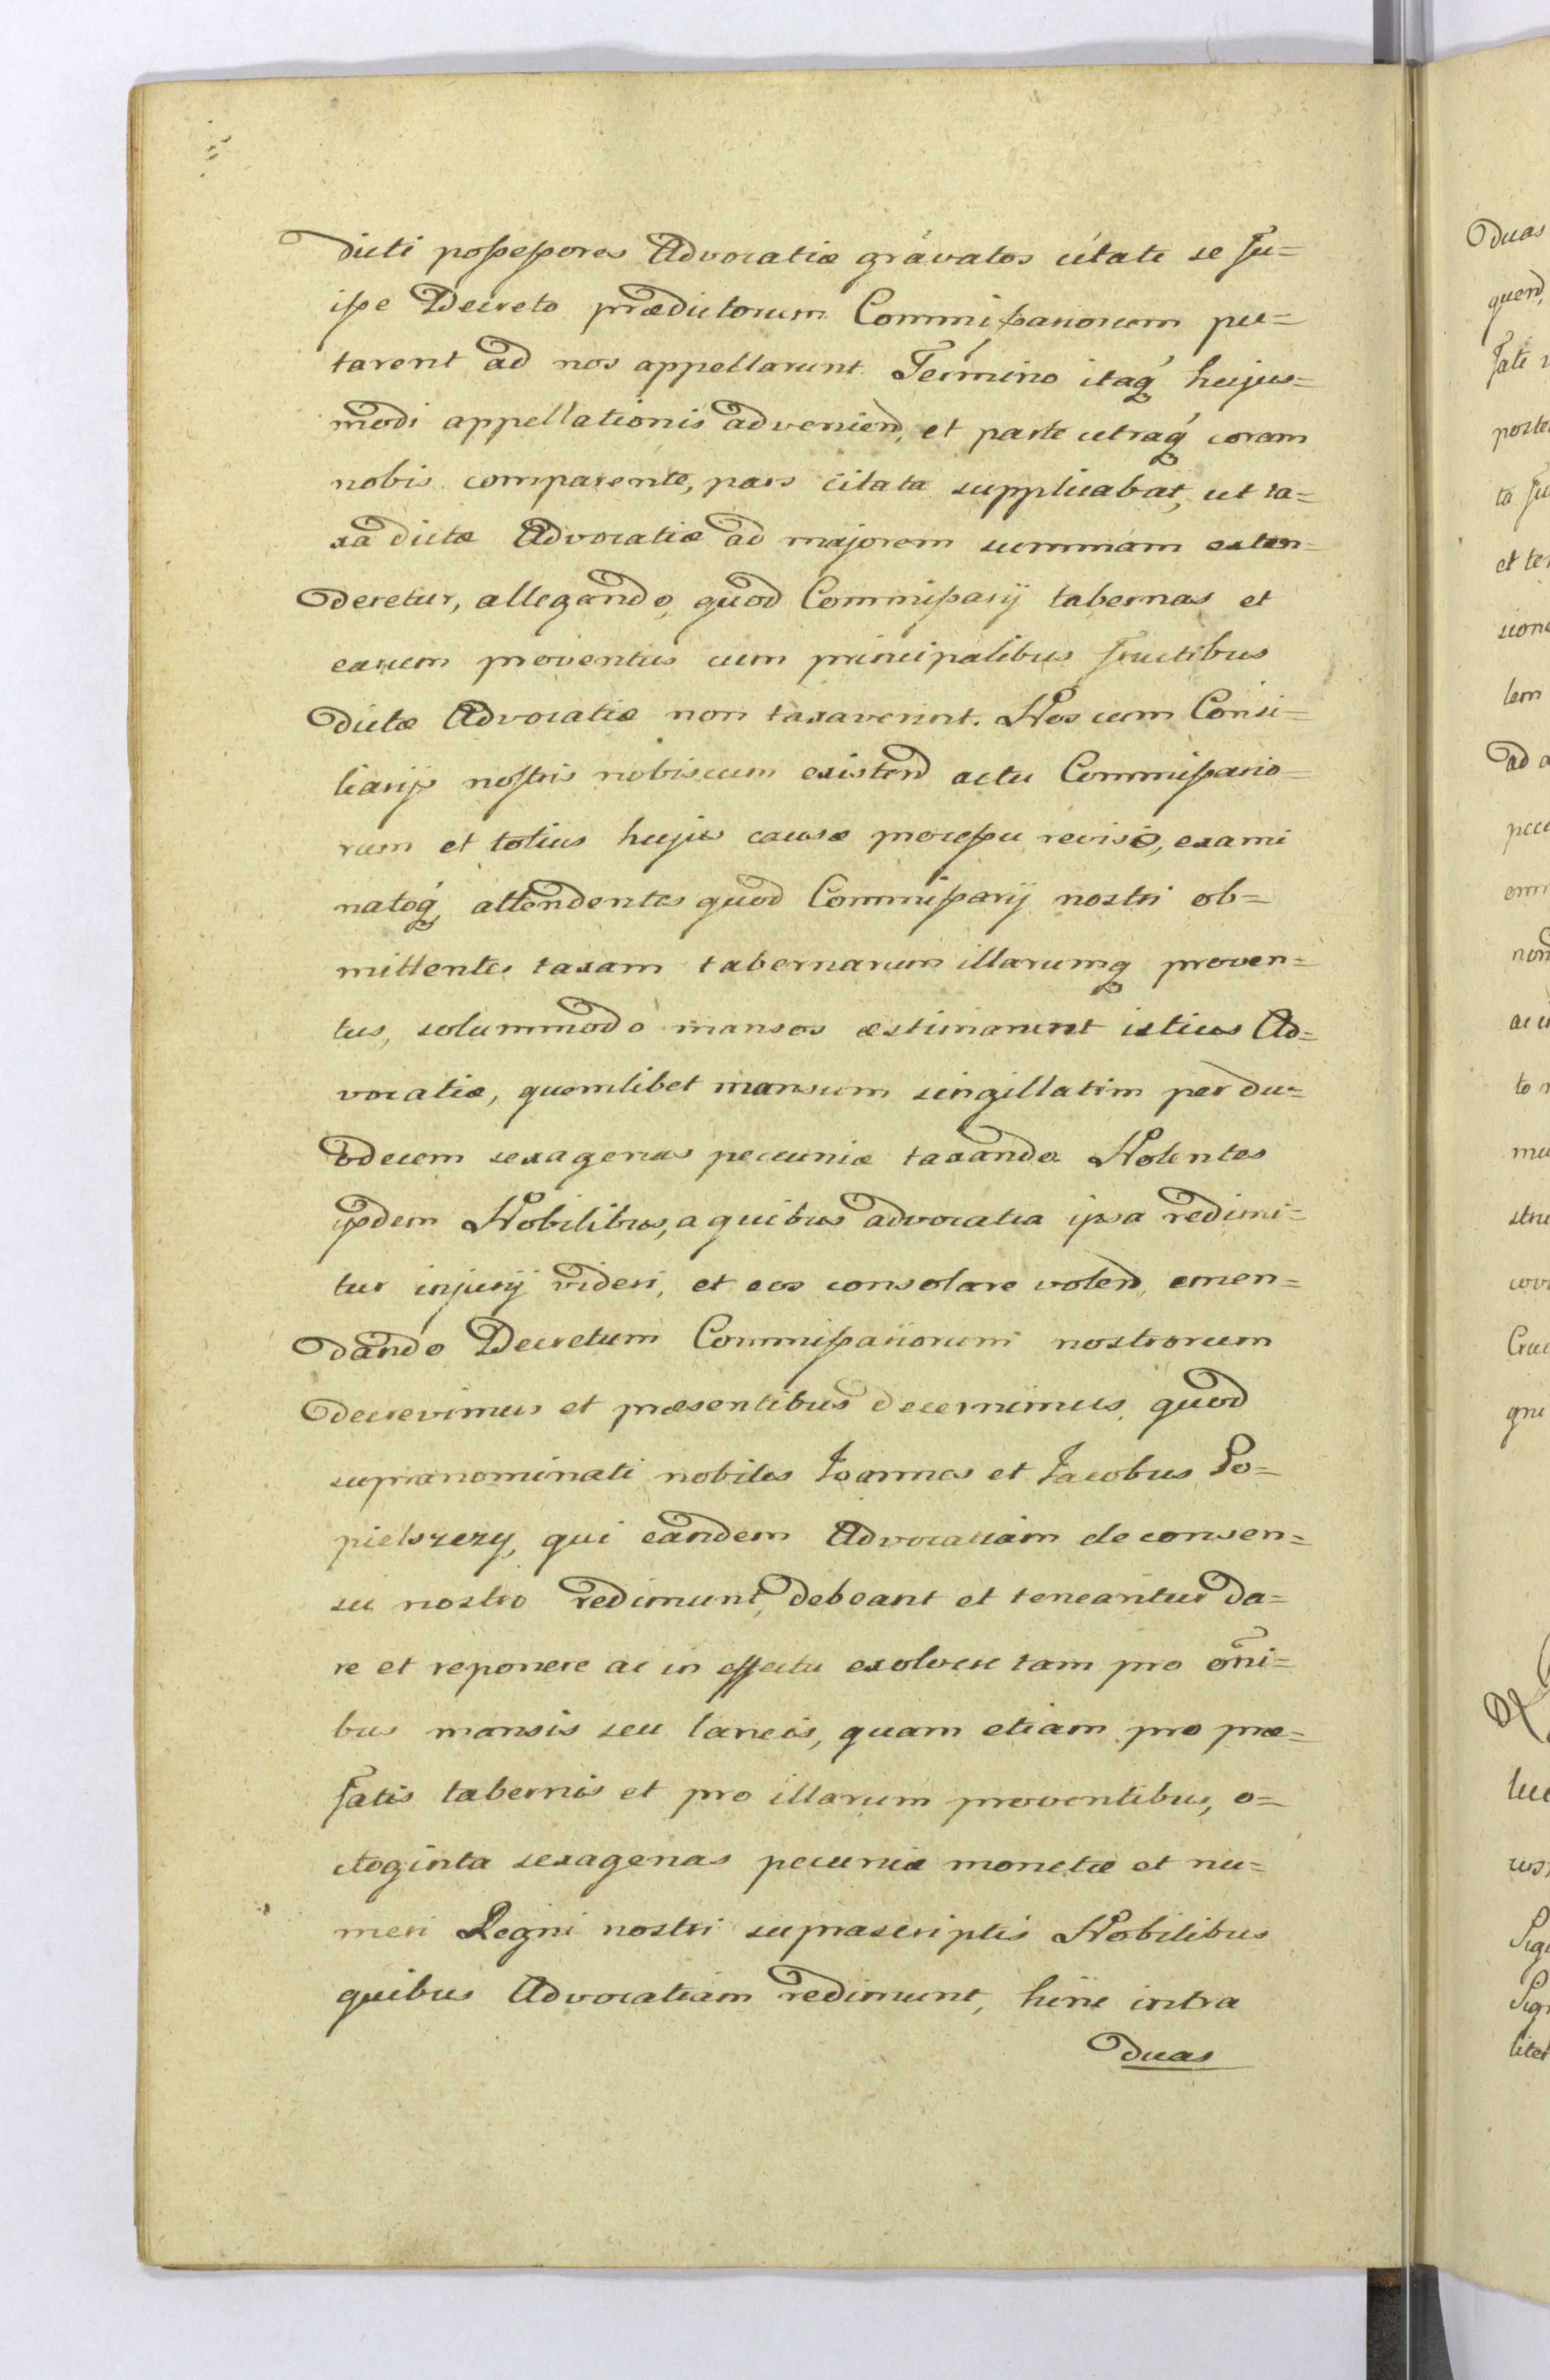 dicti possessores Advocatiæ gravatos citati se fu=
isse Decreto prædictorum Commissariorum pu=
tarent ad nos appellarunt. Termino itaq́ hujus=
modi appellationis advenien̄, et parte utraq́ coram
nobis comparente, pars citata supplicabat, ut ta=
xa dictæ Advocatiæ ad majorem summam exten=
deretur, allegando, quod Commissarij tabernas et
earum proventus cum principalibus fructibus
dictæ Advocatiæ non taxaverint. Nos cum Consi=
liarijs nostris nobiscum existen̄ actu Commissario=
rum et totius hujus causæ processu reviso, exami
natoq́ attendentes quod Commissarij nostri ob=
mittentes taxam tabernarum illarumq proven=
tus, solummodo mansos æstimarunt istius Ad=
vocatiæ, quemlibet mansum singillatim per du=
odecem sexagenas pecuniæ taxando. Nolentes
ijsdem Nobilibus, a quibus advocatia ipsa redimi=
tur injurij videri, et eos consolare volen̄, emen=
dando Decretum Commissariorum nostrorum
decrevimus et præsentibus decernimus, quod
supranominati nobiles Joannes et Jacobus Po=
pielszczy, qui eandem Advocatiam de consen=
su nostro redimunt, debeant et teneantur da=
re et reponere ac in effectu exolvere tam pro om̄i=
bus mansis seu laneis, quam etiam pro præ=
fatis tabernis et pro illarum proventibus, o=
ctoginta sexagenas pecuniæ monetæ et nu=
meri Regni nostri suprascriptis Nobilibus
quibus Advocatiam redimunt, hinc intra
duas
Duas
quen̄,
fati
poste
ta fu
et te
sione
lem
ad
pecu
omn
non
ac
to
mu
stru
cov
Crac
gni